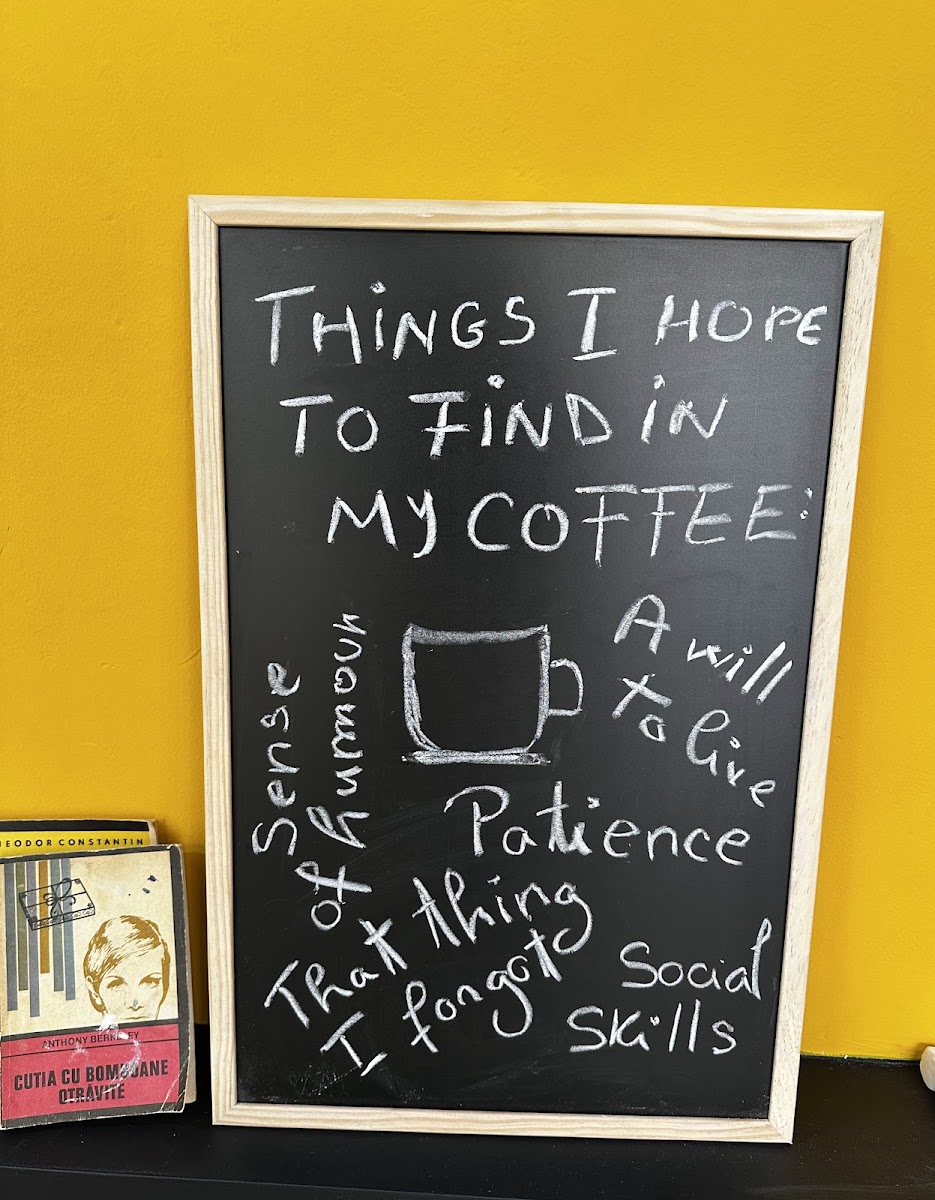 THiNGS I HOPE
TO FiND iN
MY COFFEE:
Sense
of humour
A will
to live
Patience
That thing
I forgot
Social
Skills
EODOR CONSTANTIN
ANTHONY BERKELEY
CUTIA CU BOMBOANE
OTRĂVITE